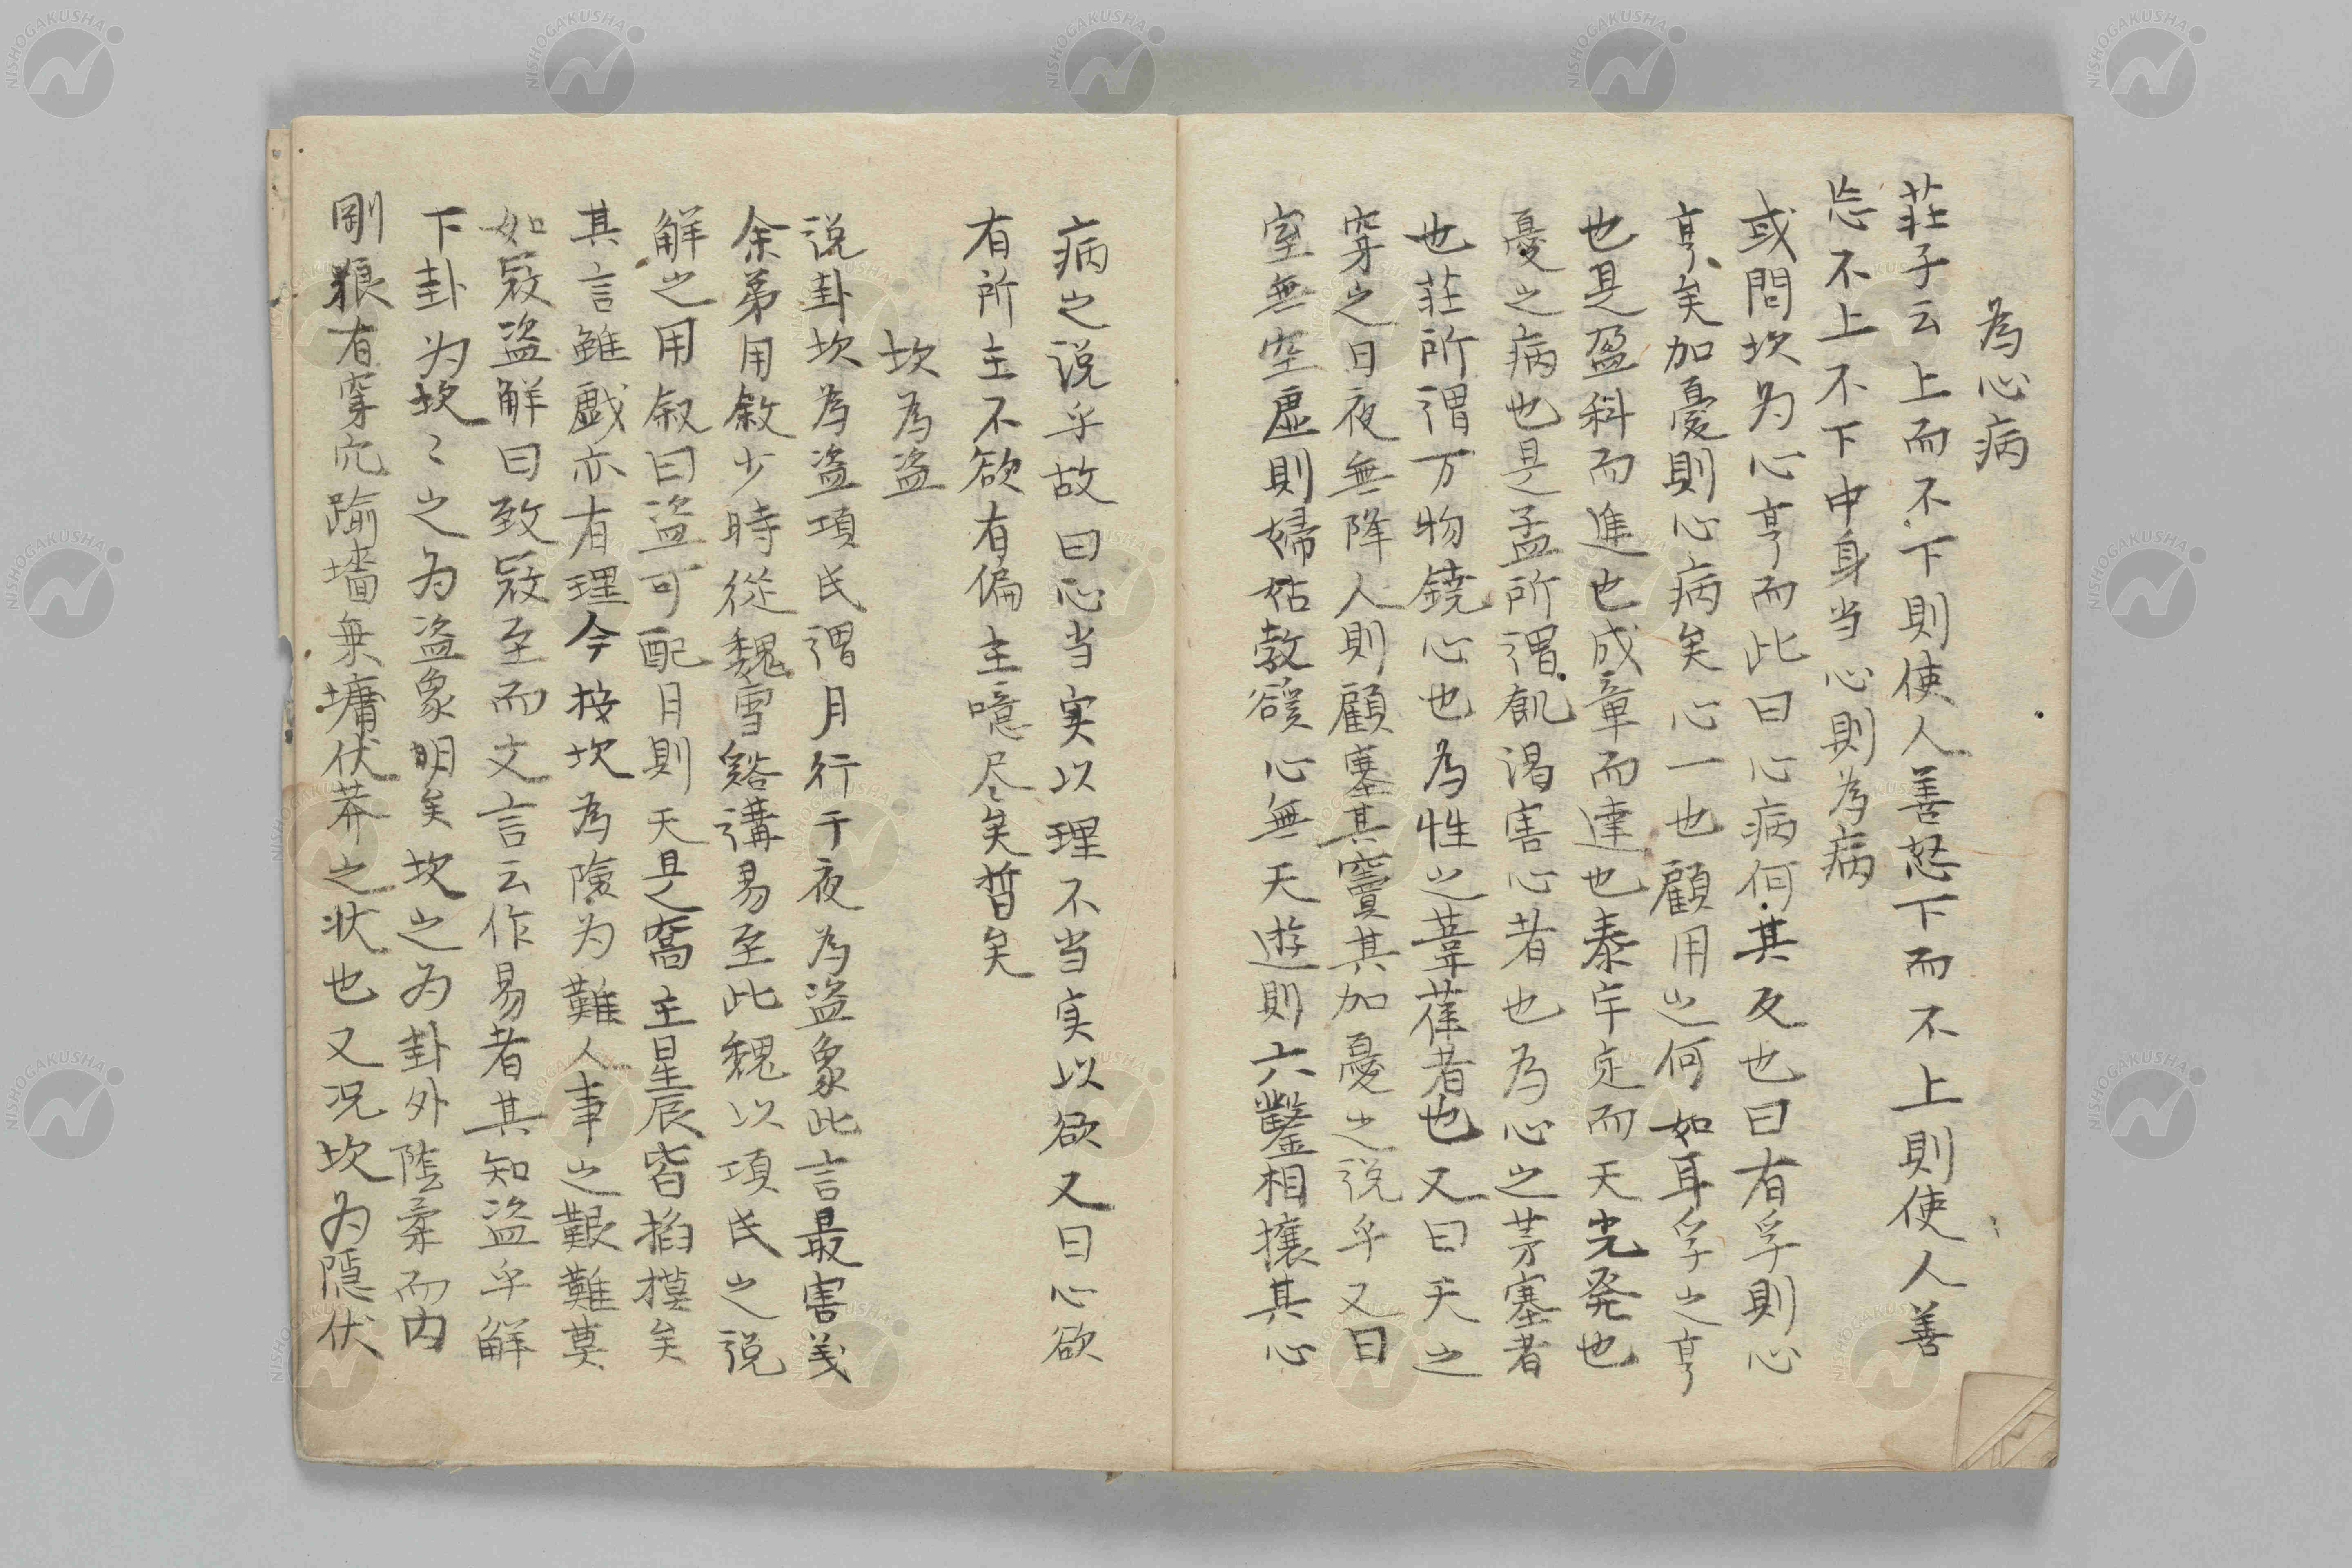 為心病
莊子云上而不下則使人善怒下而不上則使人善
忘不上不下中身当心則為病
或問坎为心亨而此曰心病何其反也曰有孚則心
亨矣加憂則心病矣心一也顧用之何如耳孚之亨
也是盈科而進也成章而達也泰宇定而天光発也
憂之病也是孟所謂飢渴害心者也為心之茅塞者
也莊所謂万物鐃心也為性之萑葦者也又曰天之
穿之日夜無降人則顧塞其竇其加憂之説乎又曰
室無空虚則婦姑勃谿心無天遊則六鑿相攘其心
病之説乎故曰心当実以理不当実以欲又曰心欲
有所主不欲有偏主噫尽矣皆矣
坎為盗
説卦坎為盗項氏謂月行于夜為盗象此言最害義
余弟用敘少時從魏雪谿講易至此魏以項氏之説
解之用叙曰盗可配月則天是窩主星辰皆掐摸矣
其言雖戯亦有理今按坎為險为難人事之艱難莫
如寇盗解曰致寇至而文言云作易者其知盗乎解
下卦为坎〻之为盗象明矣坎之为卦外陰柔而内
剛狠有穿穴踰墻乗墉伏莽之状也又况坎为隠伏